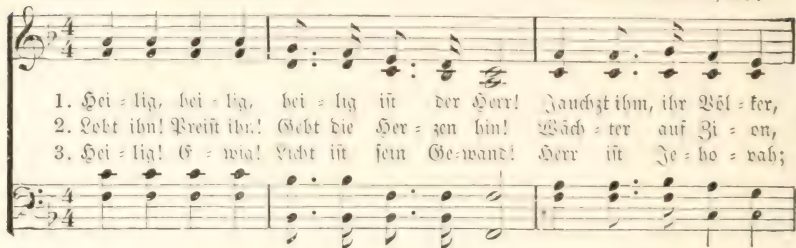 1. Hei = lig, hei = lig, hei = lig ist der Herr! Jauchzt ihm, ihr Völ = ker,
2. Lobt ihn! Preist ihn! Gebt die Her = zen hin! Wäch = ter auf Zi = on,
3. Hei = lig! E = wig! Licht ist sein Ge = wand! Herr ist Je = ho = vah;